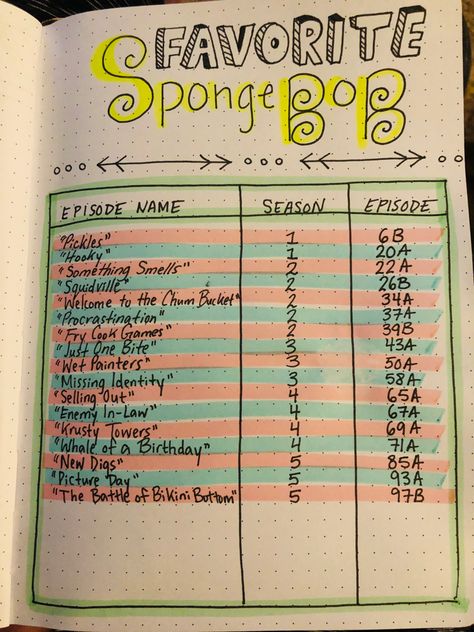 FAVORITE
SpongeBoB
EPISODE NAME SEASON EPISODE
"Pickles" 1 6B
"Hooky" 1 20A
"Something Smells" 2 22A
"Squidville" 2 26B
"Welcome to the Chum Bucket" 2 34A
"Procrastination" 2 37A
"Fry Cook Games" 2 39B
"Just One Bite" 3 43A
"Wet Painters" 3 50A
"Missing Identity" 3 58A
"Selling Out" 4 65A
"Enemy In-Law" 4 67A
"Krusty Towers" 4 69A
"Whale of a Birthday" 4 71A
"New Digs" 5 85A
"Picture Day" 5 93A
"The Battle of Bikini Bottom" 5 97B